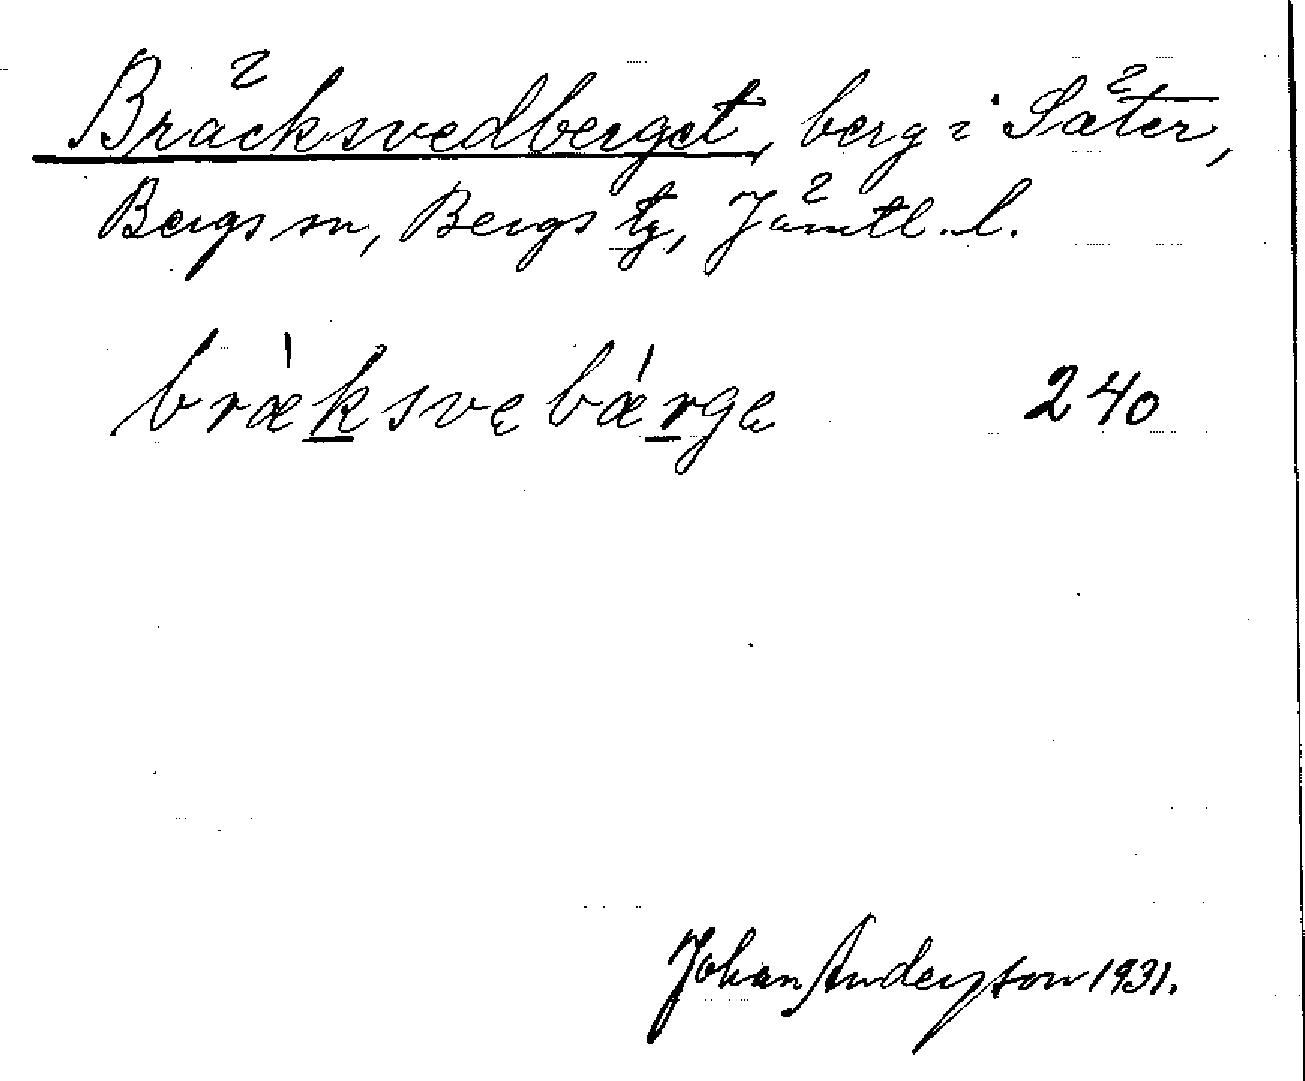 Bräcksvedberget, berg i Säter,
Bergs sn, Bergs tg, Jämtl. l.
bræ̀ksvę bǽrgę 240
Johan Anderson 1931.